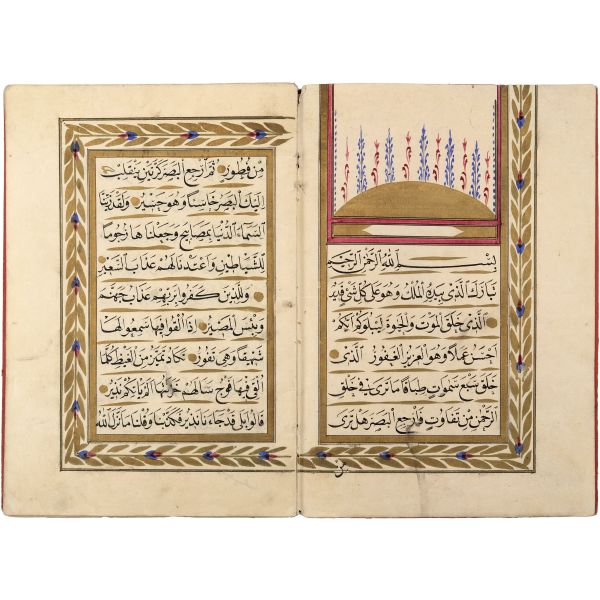 بِسْمِ اللهِ الرَّحْمٰنِ الرَّحِيْمِ
تَبَارَكَ الَّذِي بِيَدِهِ الْمُلْكُ وَهُوَ عَلٰى كُلِّ شَيْءٍ قَدِيرٌ
الَّذِي خَلَقَ الْمَوْتَ وَالْحَيٰوةَ لِيَبْلُوَكُمْ اَيُّكُمْ
اَحْسَنُ عَمَلًا وَهُوَ الْعَزِيزُ الْغَفُورُ الَّذِي
خَلَقَ سَبْعَ سَمٰوَاتٍ طِبَاقًا مَا تَرٰى فِي خَلْقِ
الرَّحْمٰنِ مِنْ تَفَاوُتٍ فَارْجِعِ الْبَصَرَ هَلْ تَرٰى
مِنْ فُطُورٍ ثُمَّ ارْجِعِ الْبَصَرَ كَرَّتَيْنِ يَنْقَلِبْ
اِلَيْكَ الْبَصَرُ خَاسِئًا وَهُوَ حَسِيرٌ وَلَقَدْ زَيَّنَّا
السَّمَاءَ الدُّنْيَا بِمَصَابِيحَ وَجَعَلْنَاهَا رُجُومًا
لِلشَّيَاطِينِ وَاَعْتَدْنَا لَهُمْ عَذَابَ السَّعِيرِ
وَلِلَّذِينَ كَفَرُوا بِرَبِّهِمْ عَذَابُ جَهَنَّمَ
وَبِئْسَ الْمَصِيرُ اِذَا اُلْقُوا فِيهَا سَمِعُوا لَهَا
شَهِيقًا وَهِيَ تَفُورُ تَكَادُ تَمَيَّزُ مِنَ الْغَيْظِ كُلَّمَا
اُلْقِيَ فِيهَا فَوْجٌ سَاَلَهُمْ خَزَنَتُهَا اَلَمْ يَأْتِكُمْ نَذِيرٌ
قَالُوا بَلٰى قَدْ جَاءَنَا نَذِيرٌ فَكَذَّبْنَا وَقُلْنَا مَا نَزَّلَ اللهُ